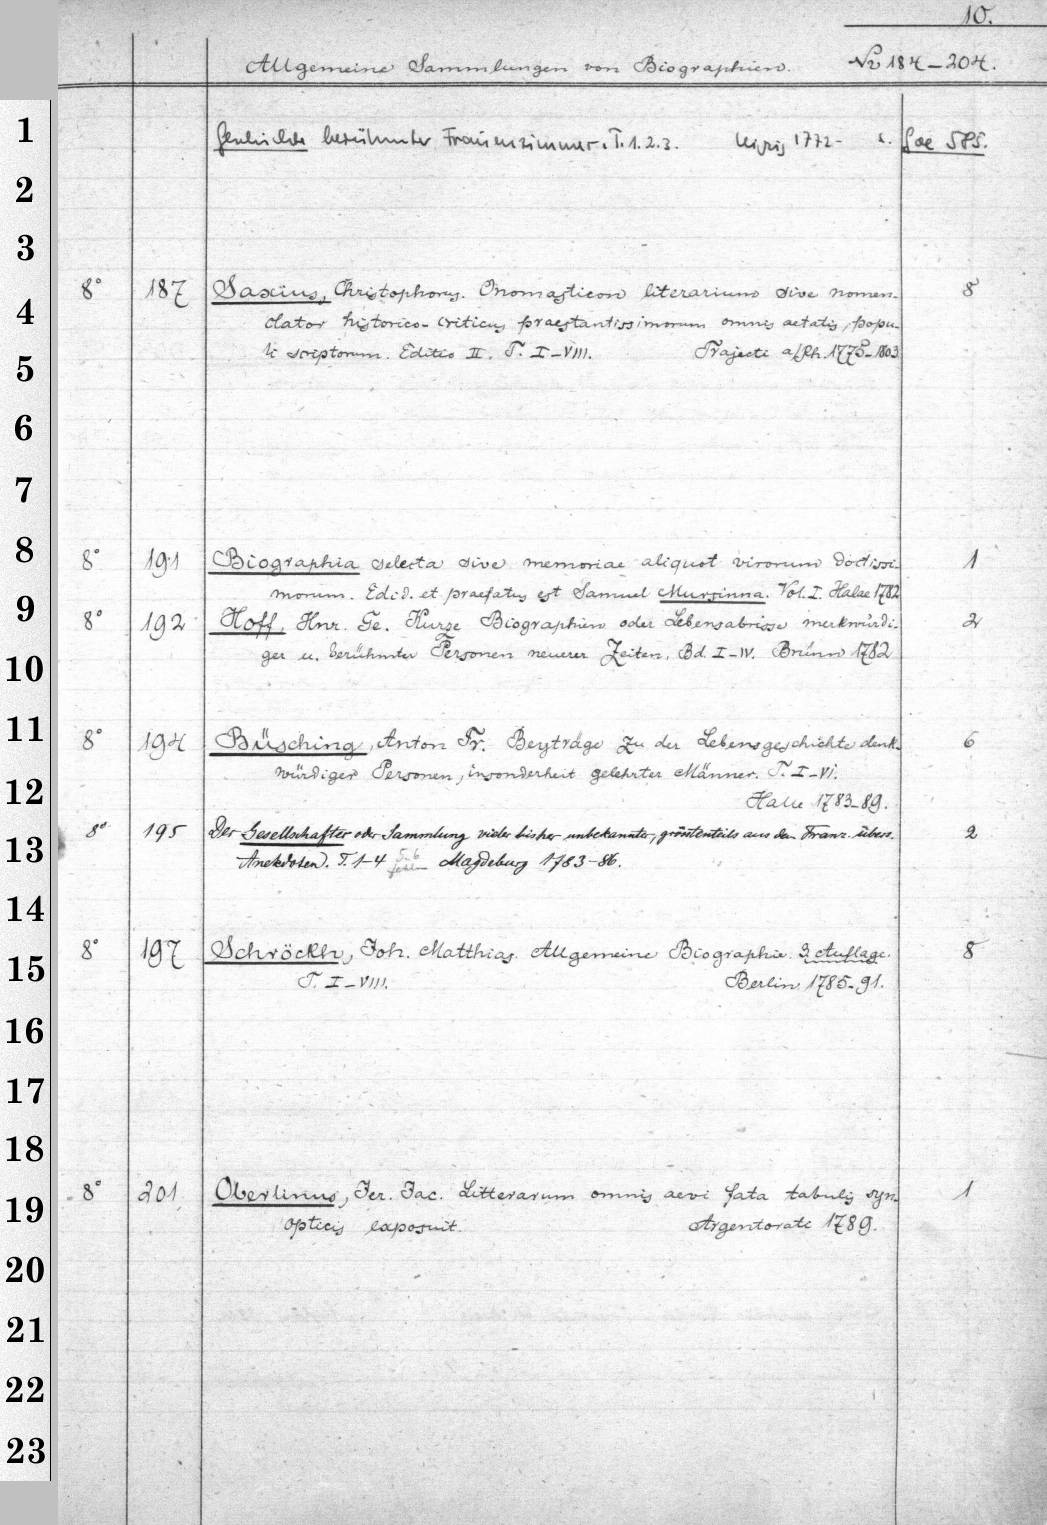 10.
Allgemeine Sammlungen von Biographien. No 184-204.
1 Geschichte berühmter Frauenzimmer. T. 1. 2. 3. Leipzig 1772- s. Gae 585.
2
3
8° 187 Saxius, Christophorus. Onomasticon literarium sive nomen- 8
4 clator historico-criticus praestantissimorum omnis aetatis, popu-
5 li scriptorum. Editio II. T. I-VIII. Trajecti a/Rh. 1775-1803
6
7
8 8° 191 Biographia selecta sive memoriae aliquot virorum doctissi- 1
9 morum. Edid. et praefatus est Samuel Mursinna. Vol. I. Halae 1782
8° 192 Hoff, Hnr. Ge. Kurze Biographien oder Lebensabrisse merkwürdi- 2
10 ger u. berühmter Personen neuerer Zeiten, Bd. I-IV. Brünn 1782
11 8° 194 Büsching, Anton Fr. Beyträge zu der Lebensgeschichte denk- 6
würdiger Personen, insonderheit gelehrter Männer. T. I-VI.
12 Halle 1783-89.
8° 195 Der Gesellschafter oder Sammlung vieler bisher unbekannter, grösstenteils aus dem Franz. übers. 2
13 Anekdoten. T. 1-4 5-6 fehlen Magdeburg 1783-86.
14
8° 197 Schröckh, Joh. Matthias. Allgemeine Biographie. 3. Auflage. 8
15 T. I-VIII. Berlin 1785-91.
16
17
18
8° 201 Oberlinus, Jer. Jac. Litterarum omnis aevi fata tabulis syn- 1
19 opticis exposuit. Argentorati 1789.
20
21
22
23